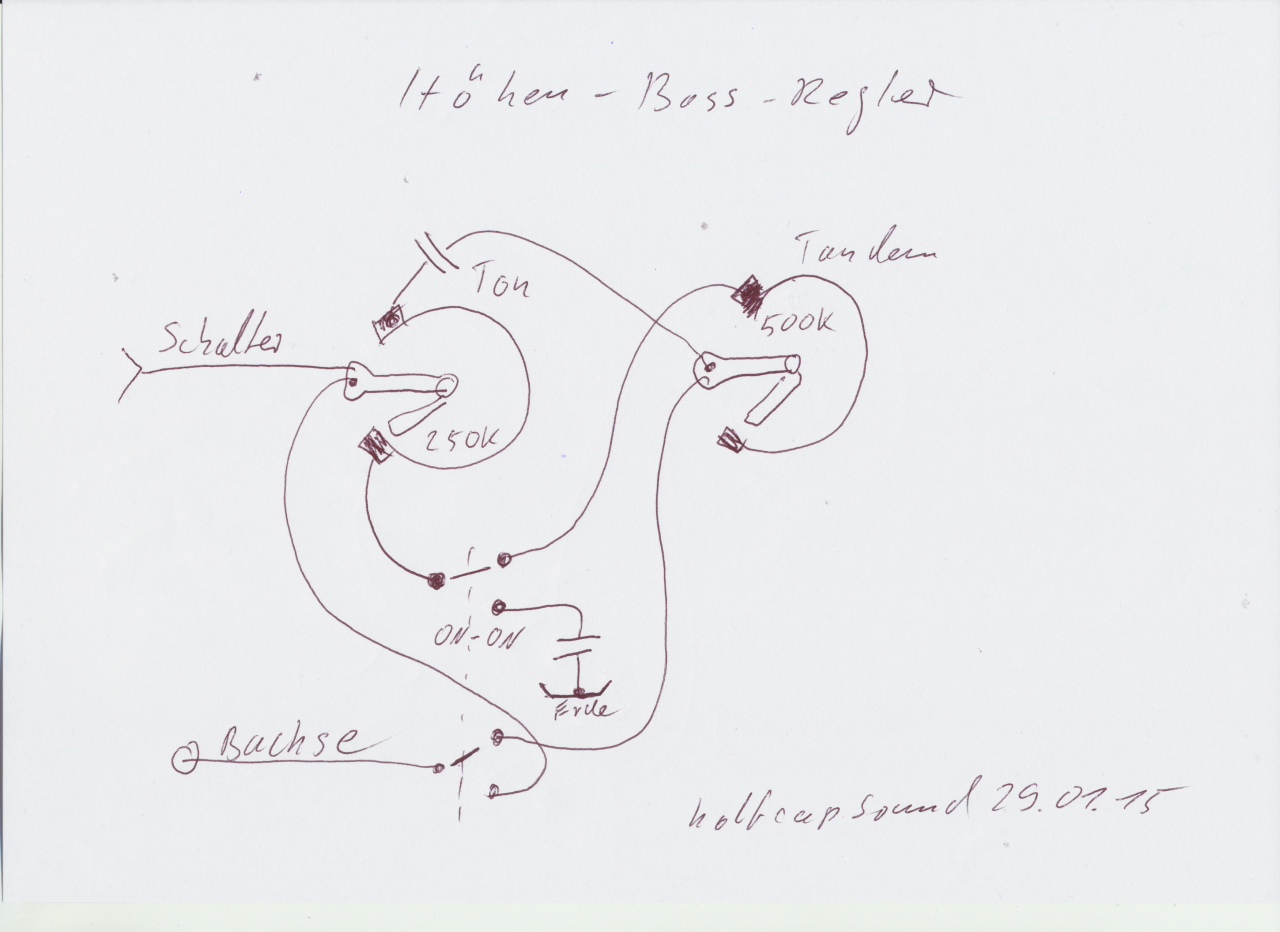 Höhen - Bass - Regler
Tandem
Ton
500K
Schalter
250K
ON-ON
Erde
Buchse
halfcapsound 29.01.15